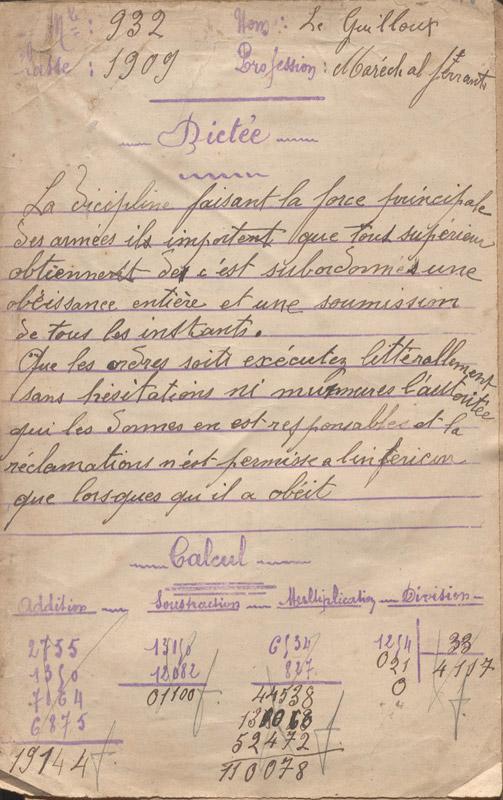 Mle : 932 Nom : Le Guilloux
Classe : 1909 Profession : Maréchal ferrant
Dictée
La dicipline faisant la force principale
des armées ils important que tous supérieur
obtiennent des c'est subordonnés une
obéissance entière et une soumission
de tous les instants.
Que les ordres soits exécutez littérallement
sans hésitations ni murmures l'autoritée
qui les donnes en est responsables et la
réclamations n'est permisse a linférieur
que lorsques qu il a obéit
Calcul
Addition Soustraction Multiplication Division
2755
1350
7164
6875
19144
12082
01100
827
44538
52472
110078
33
021
0